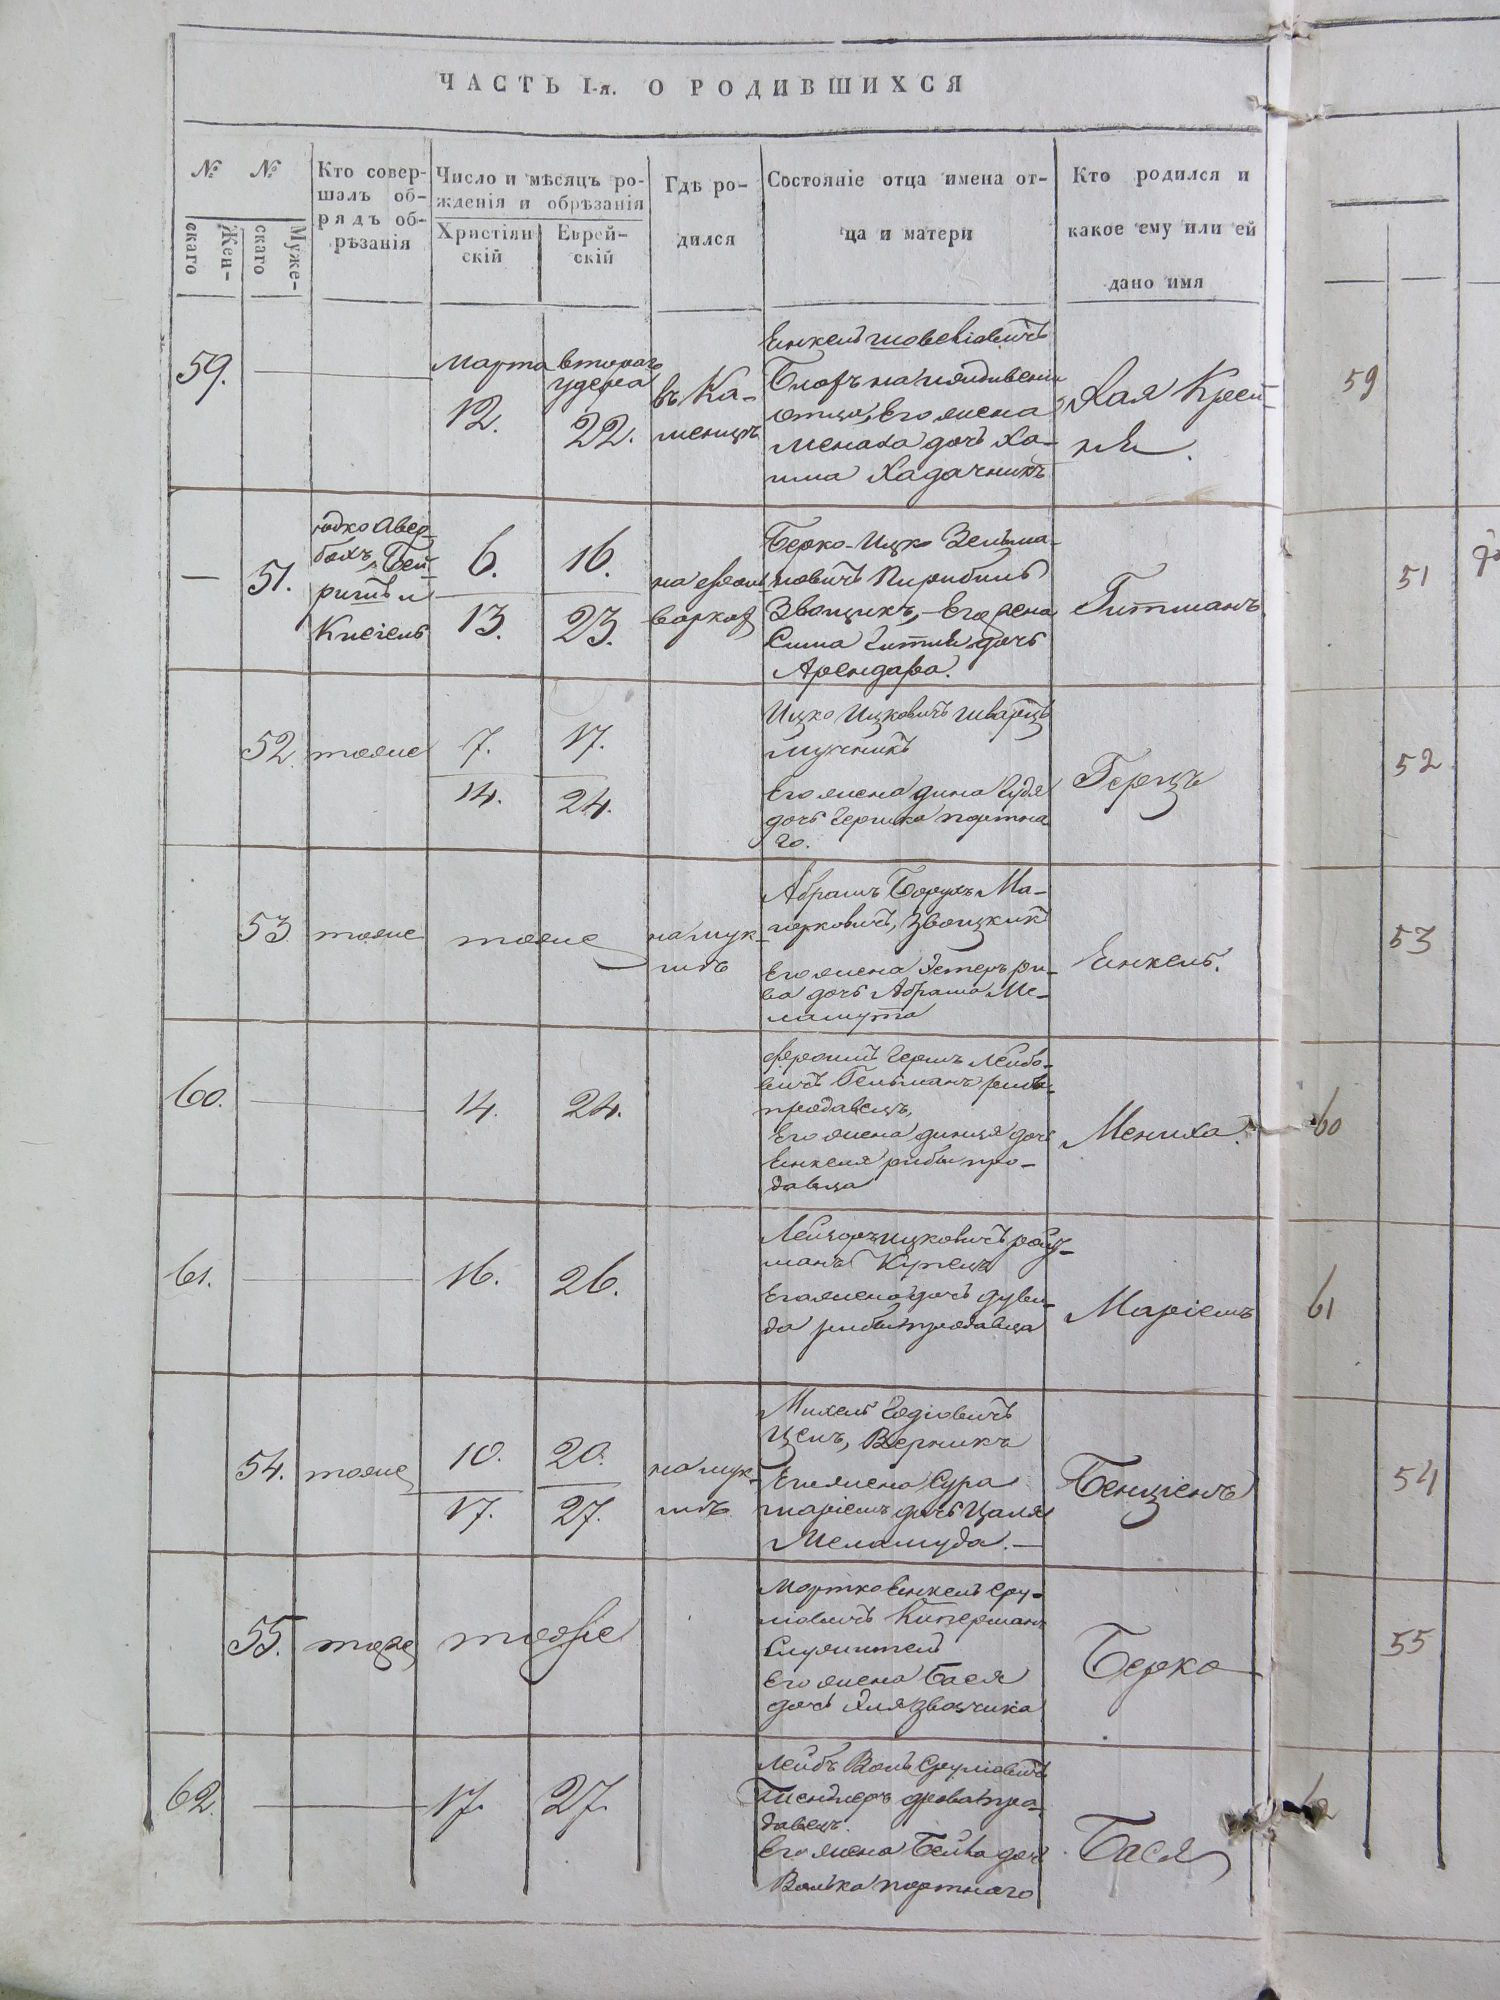 ЧАСТЬ I-я. О РОДИВШИХСЯ
№ Женскаго
№ Мужескаго
Кто совершалъ обрядъ обрѣзанія
Число и мѣсяцъ рожденія и обрѣзанія
Христіянскій
Еврейскій
Гдѣ родился
Состояніе отца имена отца и матери
Кто родился и какое ему или ей дано имя
59.
марта
12.
втораго
22.
въ Ка-
Енкель
отца, Его жена
Менаха дочь Ха-
има
Хая Крей-
59
51.
Юдко Авер-
бахъ, Бей-
ришъ и
Кисіель
6.
13.
16.
23.
на
Берко-Ицко Зельма-
новичъ
Звощикъ, Его жена
Сима Гитля дочь
Арендара.
Гитманъ
51
52.
тоже
7.
14.
17.
24.
Ицко Ицковичъ Шварцъ
Мучникъ
Его жена дина
дочь Гершка портна
го.
Герцъ
52
53
тоже
тоже
на мук-
Абрамъ Борухъ Ма-
Его жена Эстеръ ри-
ва дочь Абрама Ме-
Енкель.
53
60.
14.
24.
Гершъ Лейбо-
вичъ Гельманъ рибы
продавецъ,
Его жена динця дочь
Енкеля рибы про-
давца
Мениха.
60
61.
16.
26.
Лейзоръ Ицковичъ
манъ Купецъ
Его жена дочь дуви-
да рибы продавца
Маріемъ
61
54.
тоже
10.
17.
20.
27.
на мук-
Михель
Его жена Сура
маріемъ дочь Цаля
Меламуда.
Бенціенъ
54
55.
тоже
тоже
Мортко Енкель Сру-
ліовичъ Киперманъ
Служитель
Его жена Бася
дочь Эля звощика
Берко
55
62.
17.
27.
Лейбъ Волъ Сруліовичъ
дрова про-
давецъ
Его жена Бейла дочь
Волька портнаго
Бася
62